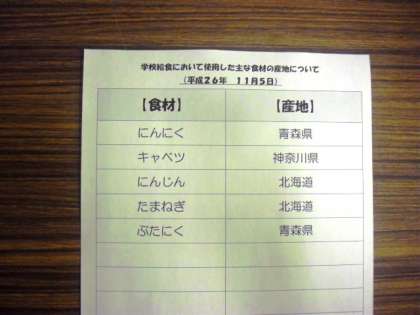 学校給食において使用した主な食材の産地について
（平成２６年　１１月５日）
【食材】　【産地】
にんにく　青森県
キャベツ　神奈川県
にんじん　北海道
たまねぎ　北海道
ぶたにく　青森県